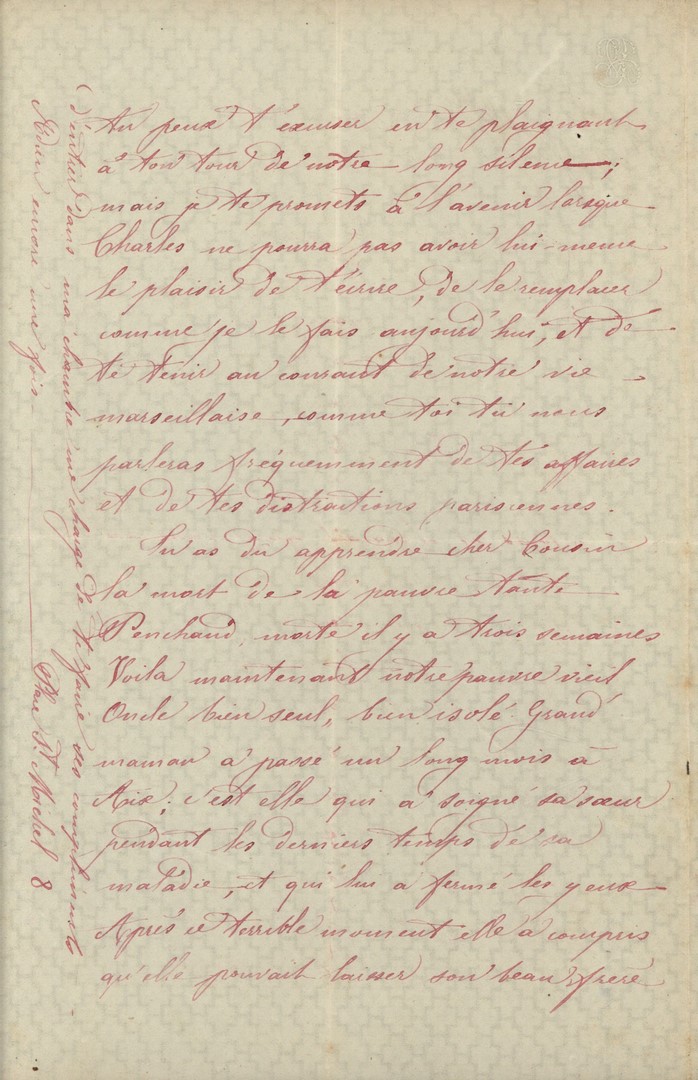 tu peux t'éxcuser en te plaignant
à ton tour de notre long silence;
mais je te promets à l'avenir lorsque
Charles ne pourra pas avoir lui-meme
le plaisir de t'écrire, de le remplacer
comme je le fais aujourd'hui, et de
te tenir au courant de notre vie
marseillaise, comme toi tu nous
parleras fréquemment de tes affaires
et de tes distractions parisiennes.
Tu as du apprendre cher Cousin
la mort de la pauvre tante
Penchaud, morte il y a trois semaines
Voila maintenant notre pauvre vieil
Oncle bien seul, bien isolé. Grand
maman a passé un long mois à
Aix; c'est elle qui a soigné sa sœur
pendant les derniers temps de sa
maladie, et qui lui a fermé les yeux
Après ce terrible moment elle a compris
qu'elle pouvait laisser son beau-frère
(d'entrer dans ma chambre me charge de te faire ses compliments
Adieu encore une fois — Place St. Michel 8